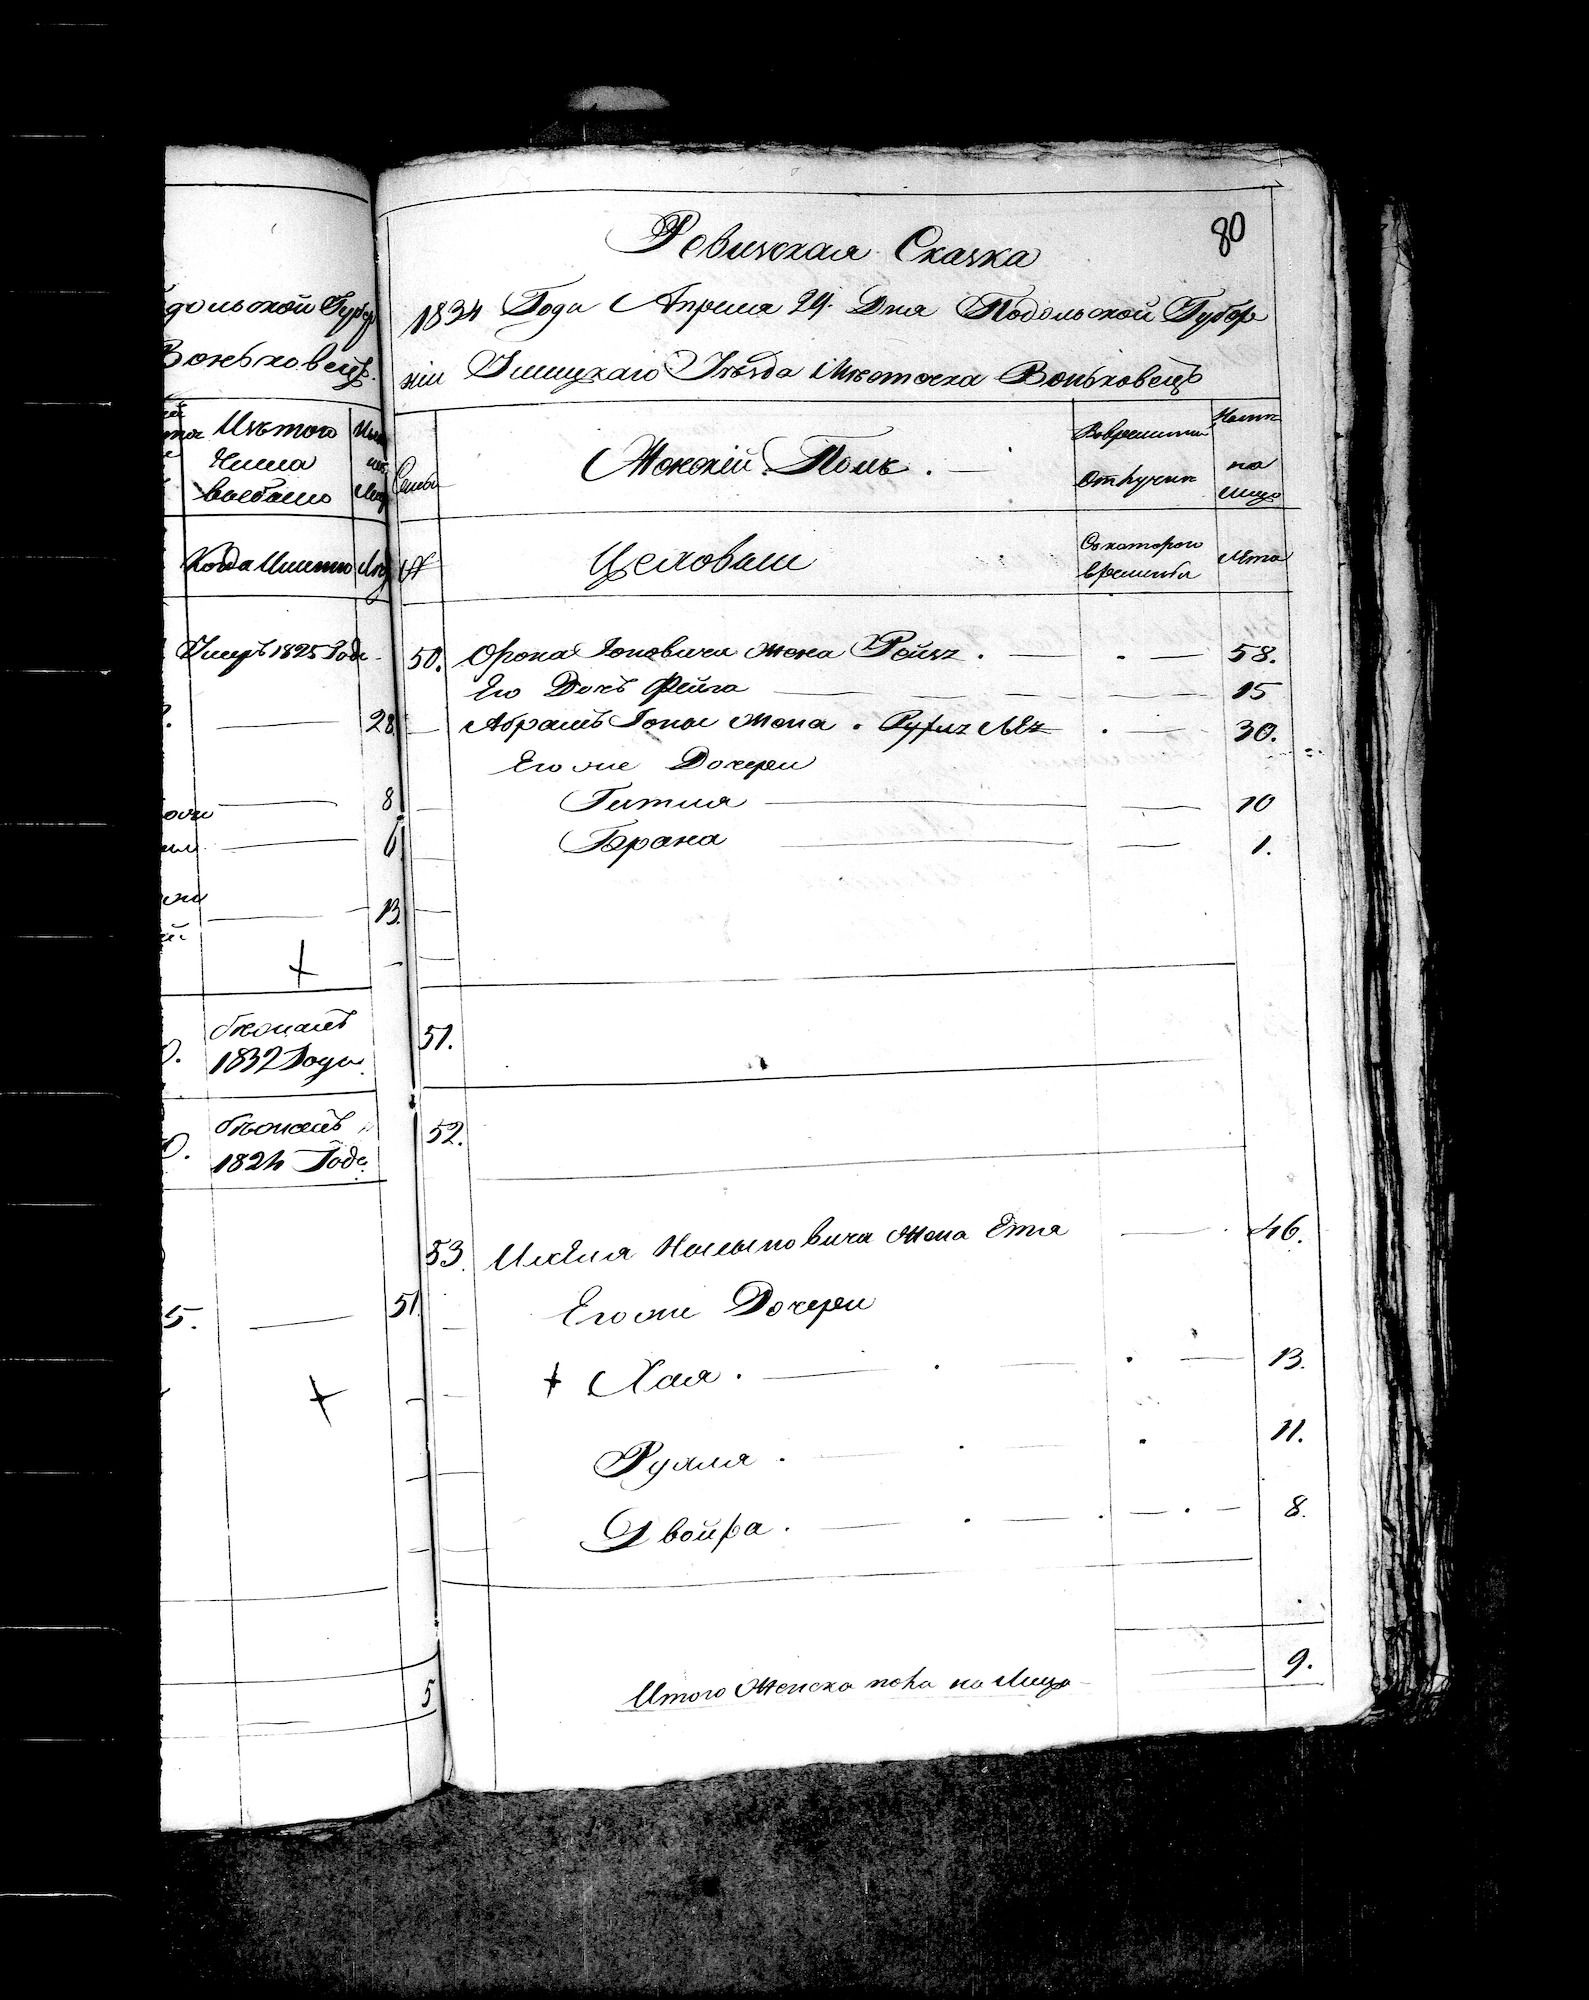 дольской Губер
Воньковецъ
Изътого
Числа
выбыло
Когда Именно
Умеръ 1825 Года
28.
8
6
13.
бежалъ
1832 Года
бежалъ
1824 Года
5.
51.
5
80
Ревизская Сказка
1834 Года Апреля 24. Дня Подольской Губер
ніи Ушицкаго Уезда Местечка Воньковецъ
Семьи
Женскій Полъ.
Вовременной
Отлучки
Ныне
на
лицо
№
Съкоторого
времени
Лета
50. Орона Іоновича жена Рейзя. 58.
Его Дочь Фейга 15
Абрамъ Іоны жена. 30.
Его же Дочери
Гитля 10
Брана 1.
51.
52.
53. жена Етя 46.
Его же Дочери
+ Хая. 13.
Рухля. 11.
Двойра. 8.
Итого Женска пола на лицо 9.